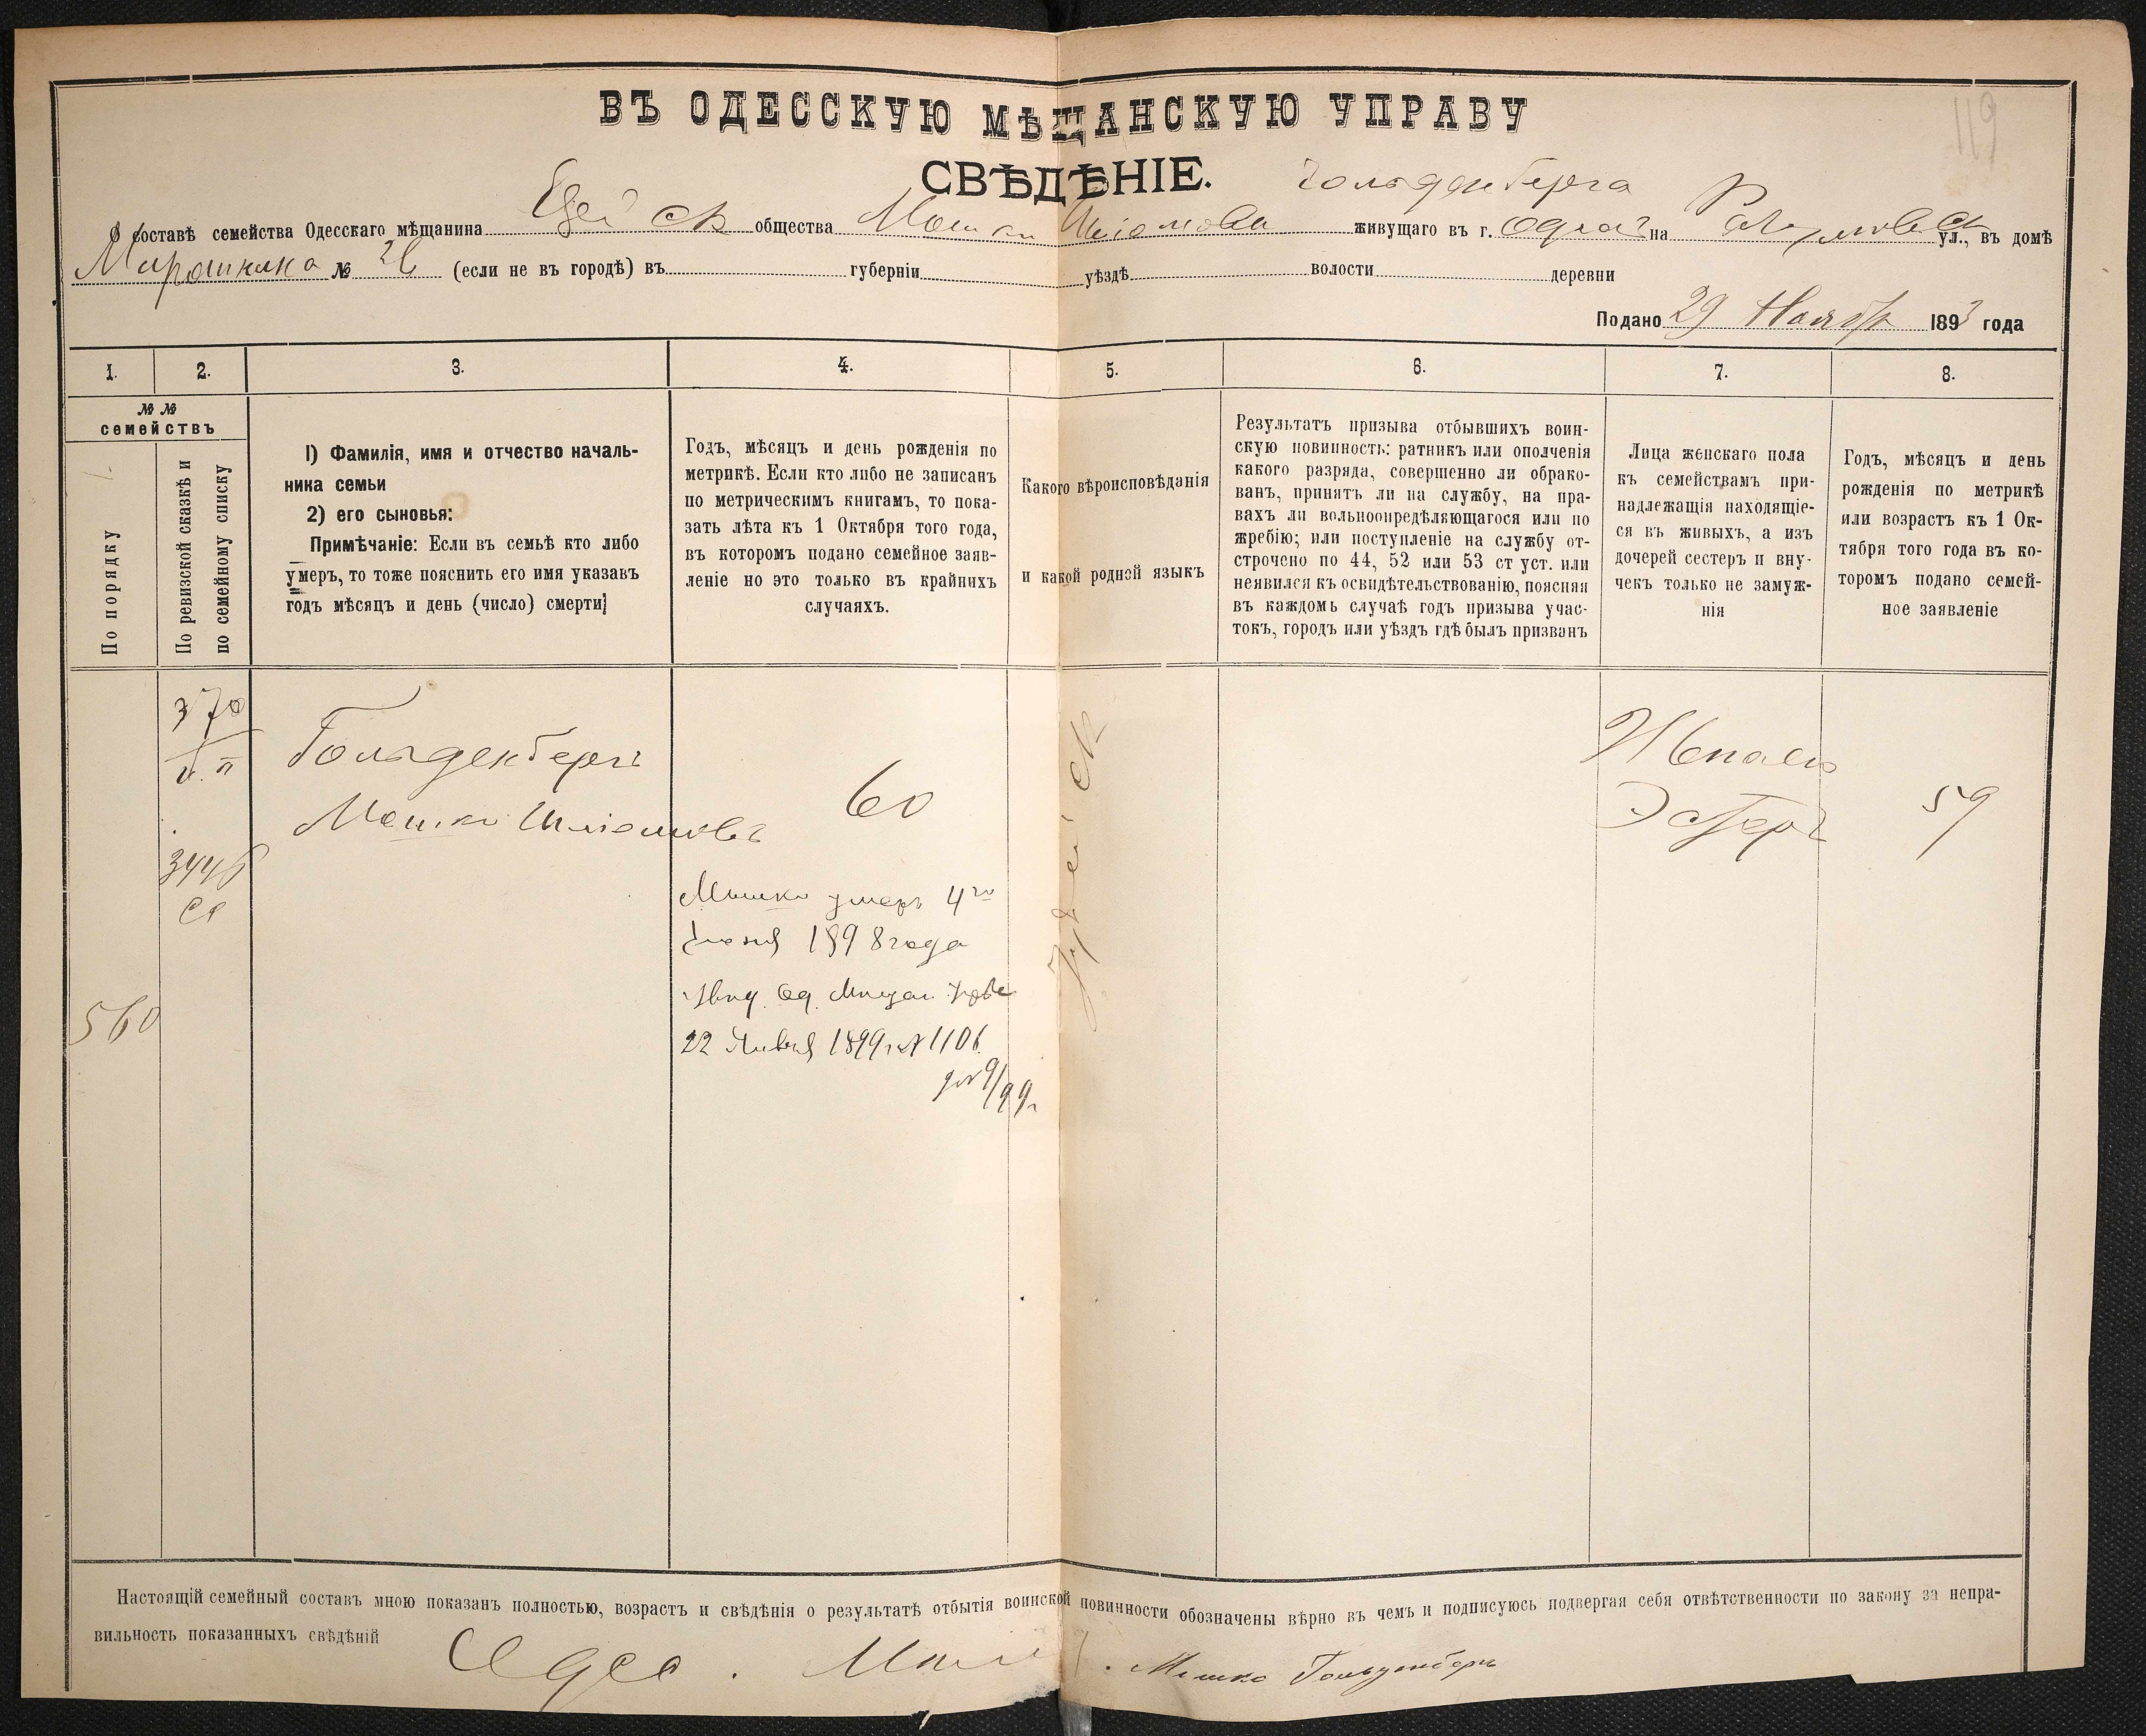 119
ВЪ ОДЕССКУЮ МѢЩАНСКУЮ УПРАВУ
СВѢДѢНІЕ.
Гольденберга
О составѣ семейства Одесскаго мѣщанина общества Мошки Шлiомова живущаго въ г. Одессѣ на ул., въ домѣ
№ 26 (если не въ городѣ) въ губерніи уѣздѣ волости деревни
Подано 29 Ноябр 1893 года
1. 2. 3. 4. 5. 6. 7. 8.
№ №
семействъ
По порядку
По ревизской сказкѣ и
по семейному списку
1) Фамилія, имя и отчество началь-
ника семьи
2) его сыновья:
Примѣчаніе: Если въ семьѣ кто либо
умеръ, то тоже пояснить его имя указавъ
годъ мѣсяцъ и день (число) смерти]
Годъ, мѣсяцъ и день рожденія по
метрикѣ. Если кто либо не записанъ
по метрическимъ книгамъ, то пока-
зать лѣта къ 1 Октября того года,
въ которомъ подано семейное заяв-
леніе но это только въ крайнихъ
случаяхъ.
Какого вѣроисповѣданія
и какой родной языкъ
Результатъ призыва отбывшихъ воин-
скую повинность: ратникъ или ополченія
какого разряда, совершенно ли обрако-
ванъ, принятъ ли на службу, на пра-
вахъ ли вольноопредѣляющагося или по
жребію; или поступленіе на службу от-
строчено по 44, 52 или 53 ст уст. или
неявился къ освидѣтельствованію, поясняя
въ каждомъ случаѣ годъ призыва учас-
токъ, городъ или уѣздъ гдѣ былъ призванъ
Лица женскаго пола
къ семействамъ при-
надлежащія находящіе-
ся въ живыхъ, а изъ
дочерей сестеръ и вну-
чекъ только не замуж-
нія
Годъ, мѣсяцъ и день
рожденія по метрикѣ
или возрастъ къ 1 Ок-
тября того года въ ко-
торомъ подано семей-
ное заявленіе
370
Гольденбергъ
Мошко Шлiомовъ
60
Іудейск
Жена его
Эстеръ
59
3446
560
Мошко умеръ 4го
Іюня 1898 года
Од. Мещан. Управы
22 Января 1899 г. № 1106
Настоящій семейный составъ мною показанъ полностью, возрастъ и свѣдѣнія о результатѣ отбытія воинской повинности обозначены вѣрно въ чемъ и подписуюсь подвергая себя отвѣтственности по закону за непра-
вильность показанныхъ свѣдѣній
Одес. Мѣщ. Мошко Гольденберъ